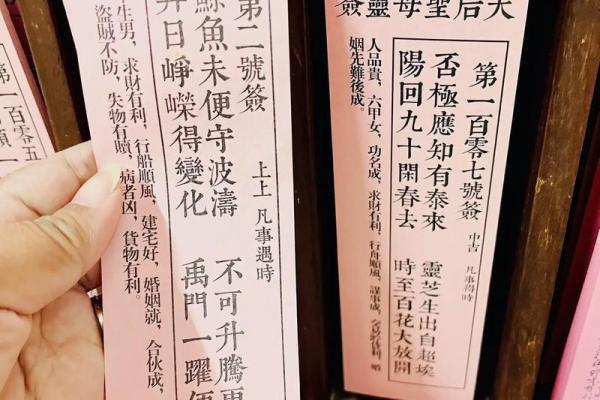 第二號簽
上上 凡事遇時
鯨魚未便守波濤 不可升騰更
昇日崢嶸得變化 禹門一躍便
生男，求財有利，行船順風，建宅好，婚姻就，合伙成，
盜賊不防，失物有贖，病者凶，貨物有利。
天后聖母靈簽
第一百零七號簽
中吉 凡事得時
否極應知有泰來 靈芝生出自超埃
陽回九十閑春去 時至百花大放開
人品貴，六甲女，功名成，求財有利，行舟順風，謀事成，交易好得利，婚
姻先難後成。
第一百零五